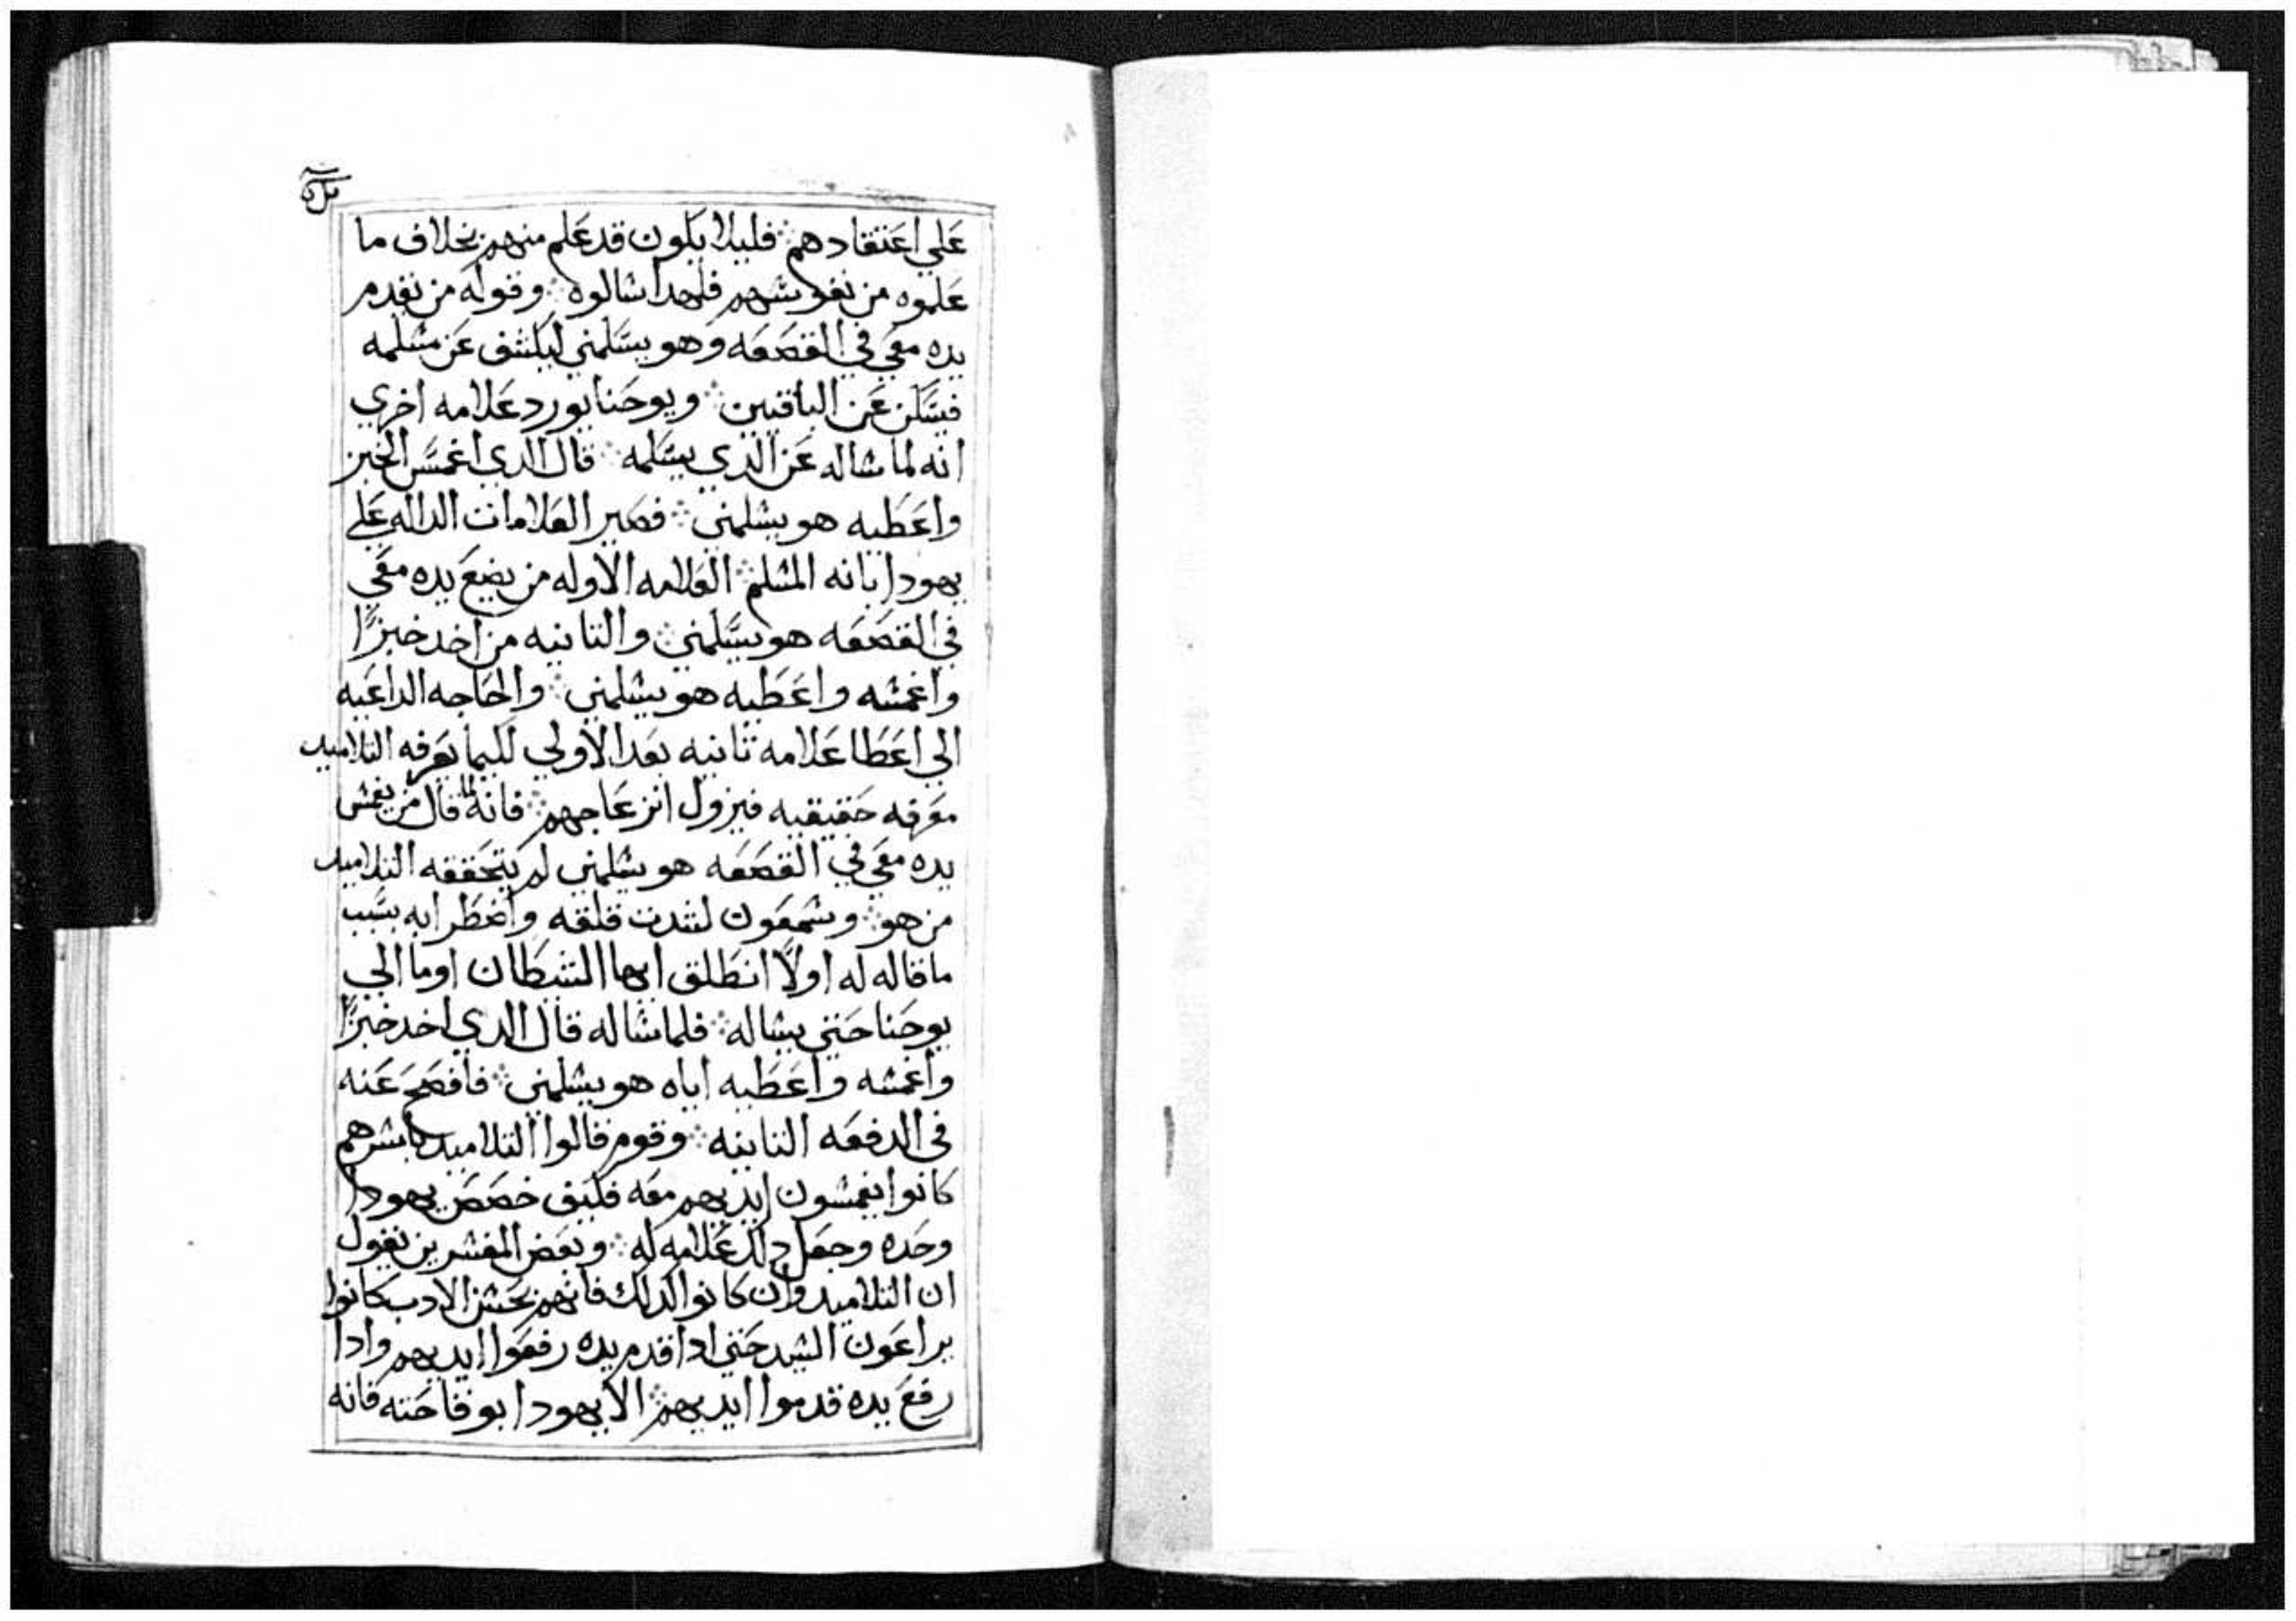 علي اعتقادهم ܀ فليلا يكون قد علم منهم بخلاف ما
علموه من نفوسهم فلهدا سالوه ܀ وقوله من يقدم
يده معي في القصعه وهو يسلمني ليكشف عن مسلمه
فيسكن عن الباقيين ܀ ويوحنا يورد علامه اخري
انه لما ساله عن الذي يسلمه ܀ قال الدي اغمس الخبز
واعطيه هو يسلمني ܀ فصير العلامات الداله علي
يهودا بانه المسلم ܀ العلامه الاوله من يضع يده معي
في القصعه هو يسلمني ܀ والتانيه من اخد خبزًا
واغمسه واعطيه هو يسلمني ܀ والحاجه الداعيه
الي اعطا علامه تانيه بعد الاولي لكيما يعرفه التلاميد
معرفه حقيقيه فيزول انزعاجهم ܀ فانه لما قال من يغمس
يده معي في القصعه هو يسلمني لم يتحققه التلاميد
من هو ܀ وسمعون لشدت قلقه واضطرابه بسبب
ما قاله له اولًا انطلق ايها الشيطان اوما الي
يوحنا حتي يساله ܀ فلما ساله قال الدي اخد خبزًا
واغمسه واعطيه اياه هو يسلمني ܀ فافصح عنه
في الدفعه التانيه ܀ وقوم قالوا التلاميد باسرهم
كانوا يغمسون ايديهم معه فكيف خصص يهودا
وحده وجعل دلك علامه له ܀ وبعض المفسرين يقول
ان التلاميد وان كانوا كدلك فانهم بحسن الادب كانوا
يراعون السيد حتي ادا قدم يده رفعوا ايديهم وادا
رفع يده قدموا ايديهم ܀ الا يهودا بوقاحته فانه